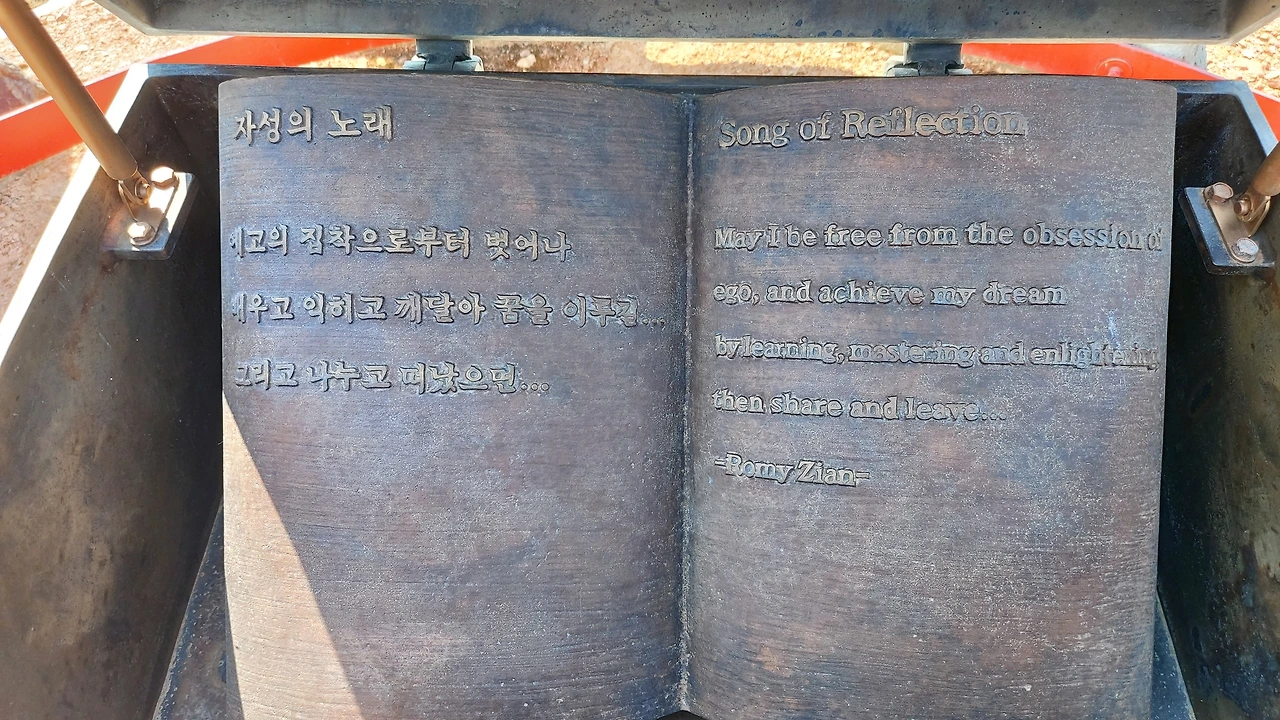 자성의 노래
에고의 집착으로부터 벗어나
배우고 익히고 깨달아 꿈을 이루길...
그리고 나누고 떠났으면...
Song of Reflection
May I be free from the obsession of
ego, and achieve my dream
by learning, mastering and enlightening,
then share and leave...
-Romy Zian-